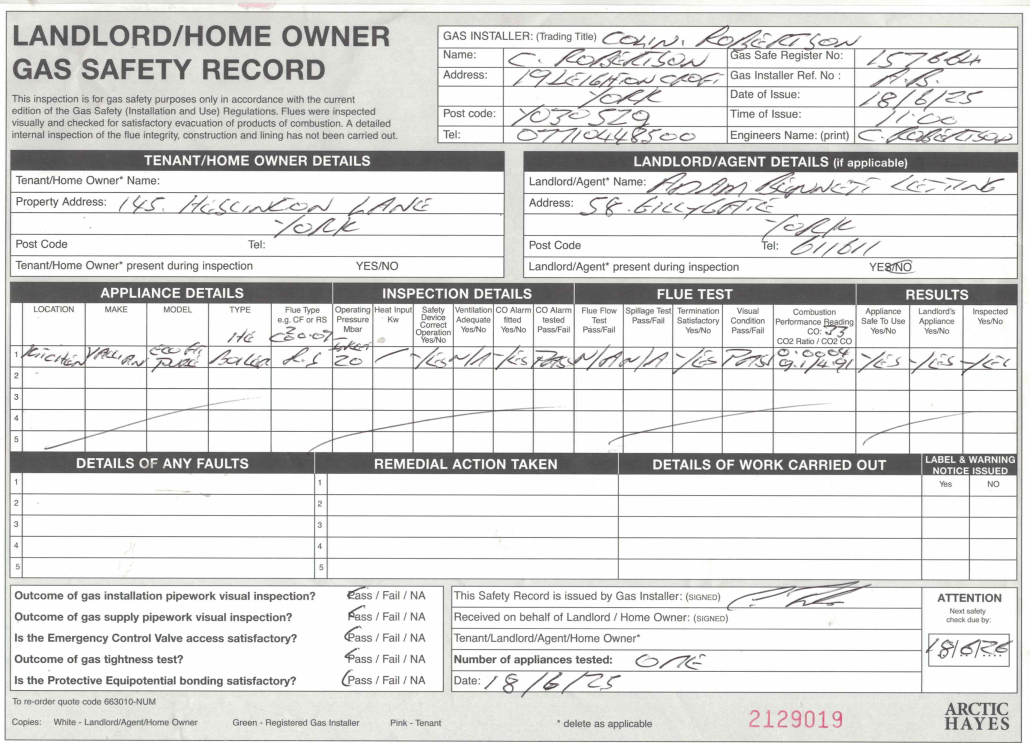 LANDLORD/HOME OWNER
GAS SAFETY RECORD
This inspection is for gas safety purposes only in accordance with the current
edition of the Gas Safety (Installation and Use) Regulations. Flues were inspected
visually and checked for satisfactory evacuation of products of combustion. A detailed
internal inspection of the flue integrity, construction and lining has not been carried out.
GAS INSTALLER: (Trading Title) COLIN. ROBERTSON
Name: C. ROBERTSON Gas Safe Register No: 157664
Address: 19 LEIGHTON CROFT Gas Installer Ref. No : A.B.
YORK Date of Issue: 18/6/25
Post code: YO30 5 Time of Issue: 11:00
Tel: 07710448500 Engineers Name: (print) C. ROBERTSON
TENANT/HOME OWNER DETAILS
Tenant/Home Owner* Name:
Property Address: 145. HESLINGTON LANE
YORK
Post Code Tel:
Tenant/Home Owner* present during inspection YES/NO
LANDLORD/AGENT DETAILS (if applicable)
Landlord/Agent* Name: ADAM BENNETT LETTING
Address: 58. GILLYGATE
YORK
Post Code Tel: 611611
Landlord/Agent* present during inspection YES/NO
APPLIANCE DETAILS INSPECTION DETAILS FLUE TEST RESULTS
LOCATION MAKE MODEL TYPE Flue Type e.g. CF or RS Operating Pressure Mbar Heat Input Kw Safety Device Correct Operation Yes/No Ventilation Adequate Yes/No CO Alarm fitted Yes/No CO Alarm tested Pass/Fail Flue Flow Test Pass/Fail Spillage Test Pass/Fail Termination Satisfactory Yes/No Visual Condition Pass/Fail Combustion Performance Reading CO: 53 CO2 Ratio / CO2 CO Appliance Safe To Use Yes/No Landlord's Appliance Yes/No Inspected Yes/No
HE
1 KITCHEN ECO BOILER R.S 20 YES N/A YES PASS N/A N/A YES PASS 9.1/ YES YES YES
2
3
4
5
DETAILS OF ANY FAULTS REMEDIAL ACTION TAKEN DETAILS OF WORK CARRIED OUT LABEL & WARNING NOTICE ISSUED
Yes NO
1 1
2 2
3 3
4 4
5 5
Outcome of gas installation pipework visual inspection? Pass / Fail / NA
Outcome of gas supply pipework visual inspection? Pass / Fail / NA
Is the Emergency Control Valve access satisfactory? Pass / Fail / NA
Outcome of gas tightness test? Pass / Fail / NA
Is the Protective Equipotential bonding satisfactory? Pass / Fail / NA
This Safety Record is issued by Gas Installer: (SIGNED)
Received on behalf of Landlord / Home Owner: (SIGNED)
Tenant/Landlord/Agent/Home Owner*
Number of appliances tested: ONE
Date: 18/6/25
ATTENTION
Next safety
check due by:
18/6/26
To re-order quote code 663010-NUM
Copies: White - Landlord/Agent/Home Owner Green - Registered Gas Installer Pink - Tenant * delete as applicable 2129019
ARCTIC
HAYES